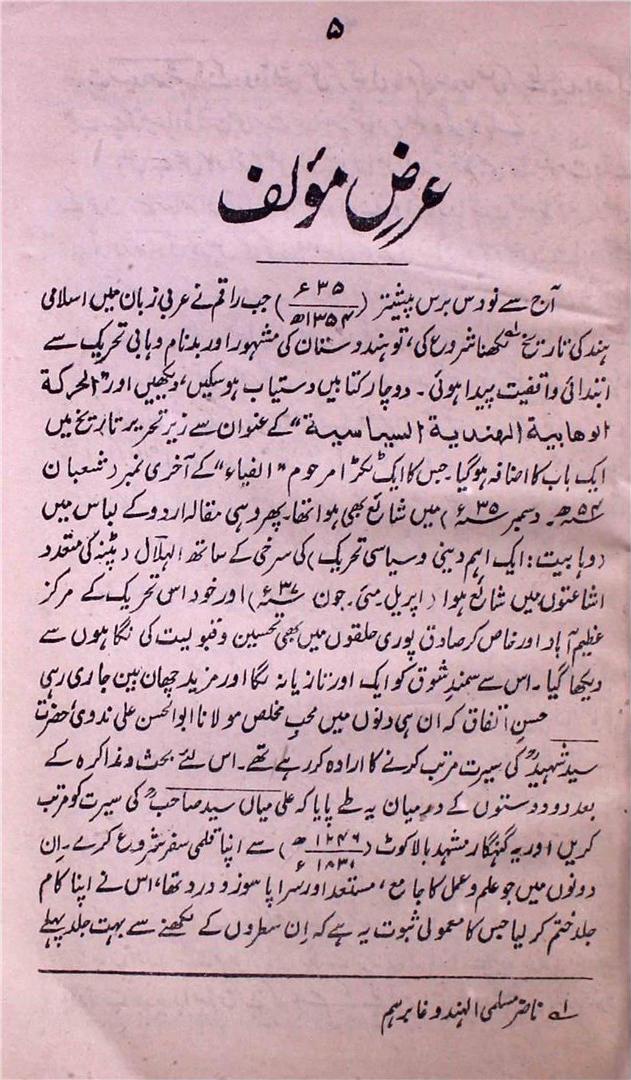 ۵
عرضِ مؤلف
آج سے نو دس برس پیشتر (۳۵ء / ۱۳۵۴ھ) جب راقم نے عربی زبان میں اسلامی
ہند کی تاریخ لکھنا شروع کی، تو ہندوستان کی مشہور اور بدنام وہابی تحریک سے
ابتدائی واقفیت پیدا ہوئی۔ دو چار کتابیں دستیاب ہو سکیں، دیکھیں اور "الحركة
الوهابية الهندية السياسية" کے عنوان سے زیر تحریر تاریخ میں
ایک باب کا اضافہ ہو گیا۔ جس کا ایک ٹکڑا مرحوم "الضیاء" کے آخری نمبر (شعبان
۵۴ھ۔ دسمبر ۳۵ء) میں شائع بھی ہوا تھا۔ پھر وہی مقالہ اردو کے لباس میں
(وہابیت: ایک اہم دینی و سیاسی تحریک) کی سرخی کے ساتھ الہلال (پٹنہ) کی متعدد
اشاعتوں میں شائع ہوا (اپریل۔ مئی۔ جون ۳۷ء) اور خود اس تحریک کے مرکز
عظیم آباد اور خاص کر صادق پوری حلقوں میں بھی تحسین و قبولیت کی نگاہوں سے
دیکھا گیا۔ اس سے سمندِ شوق کو ایک اور تازیانہ لگا اور مزید چھان بین جاری رہی
حسنِ اتفاق کہ ان ہی دنوں میں محبِ مخلص مولانا ابوالحسن علی ندوی، حضرت
سید شہیدؒ کی سیرت مرتب کرنے کا ارادہ کر رہے تھے۔ اس لئے بحث و مذاکرہ کے
بعد دو دوستوں کے درمیان یہ طے پایا کہ علی میاں سید صاحبؒ کی سیرت کو مرتب
کریں اور یہ گنہگار مشہد بالاکوٹ (۱۲۴۶ھ / ۱۸۳۱ء) سے اپنا قلمی سفر شروع کرے۔ اِن
دونوں میں جو علم و عمل کا جامع، مستعد اور سراپا سوز و درد تھا، اس نے اپنا کام
جلد ختم کر لیا جس کا معمولی ثبوت یہ ہے کہ اِن سطروں کے لکھنے سے بہت جلد پہلے
۱؎ ناضر مسلمی الہند و غابرہم